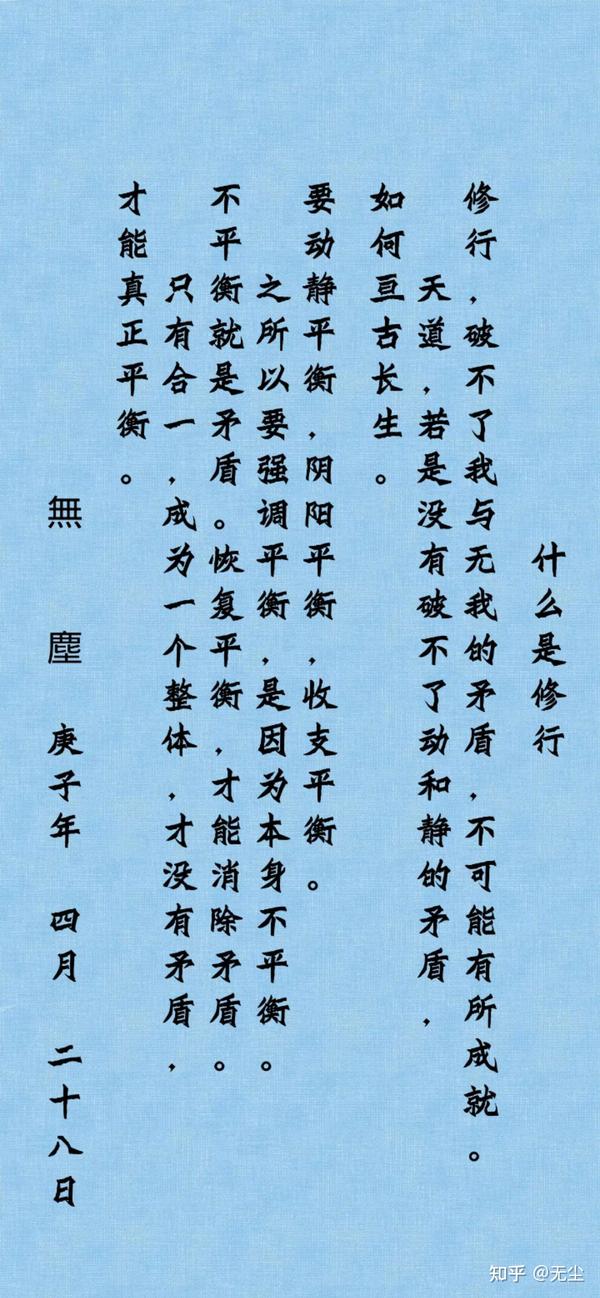 什么是修行
修行，破不了我与无我的矛盾，不可能有所成就。
天道，若是没有破不了动和静的矛盾，
如何亘古长生。
要动静平衡，阴阳平衡，收支平衡。
之所以要强调平衡，是因为本身不平衡。
不平衡就是矛盾。恢复平衡，才能消除矛盾。
只有合一，成为一个整体，才没有矛盾，
才能真正平衡。
無 塵 庚子年 四月 二十八日
知乎 @无尘